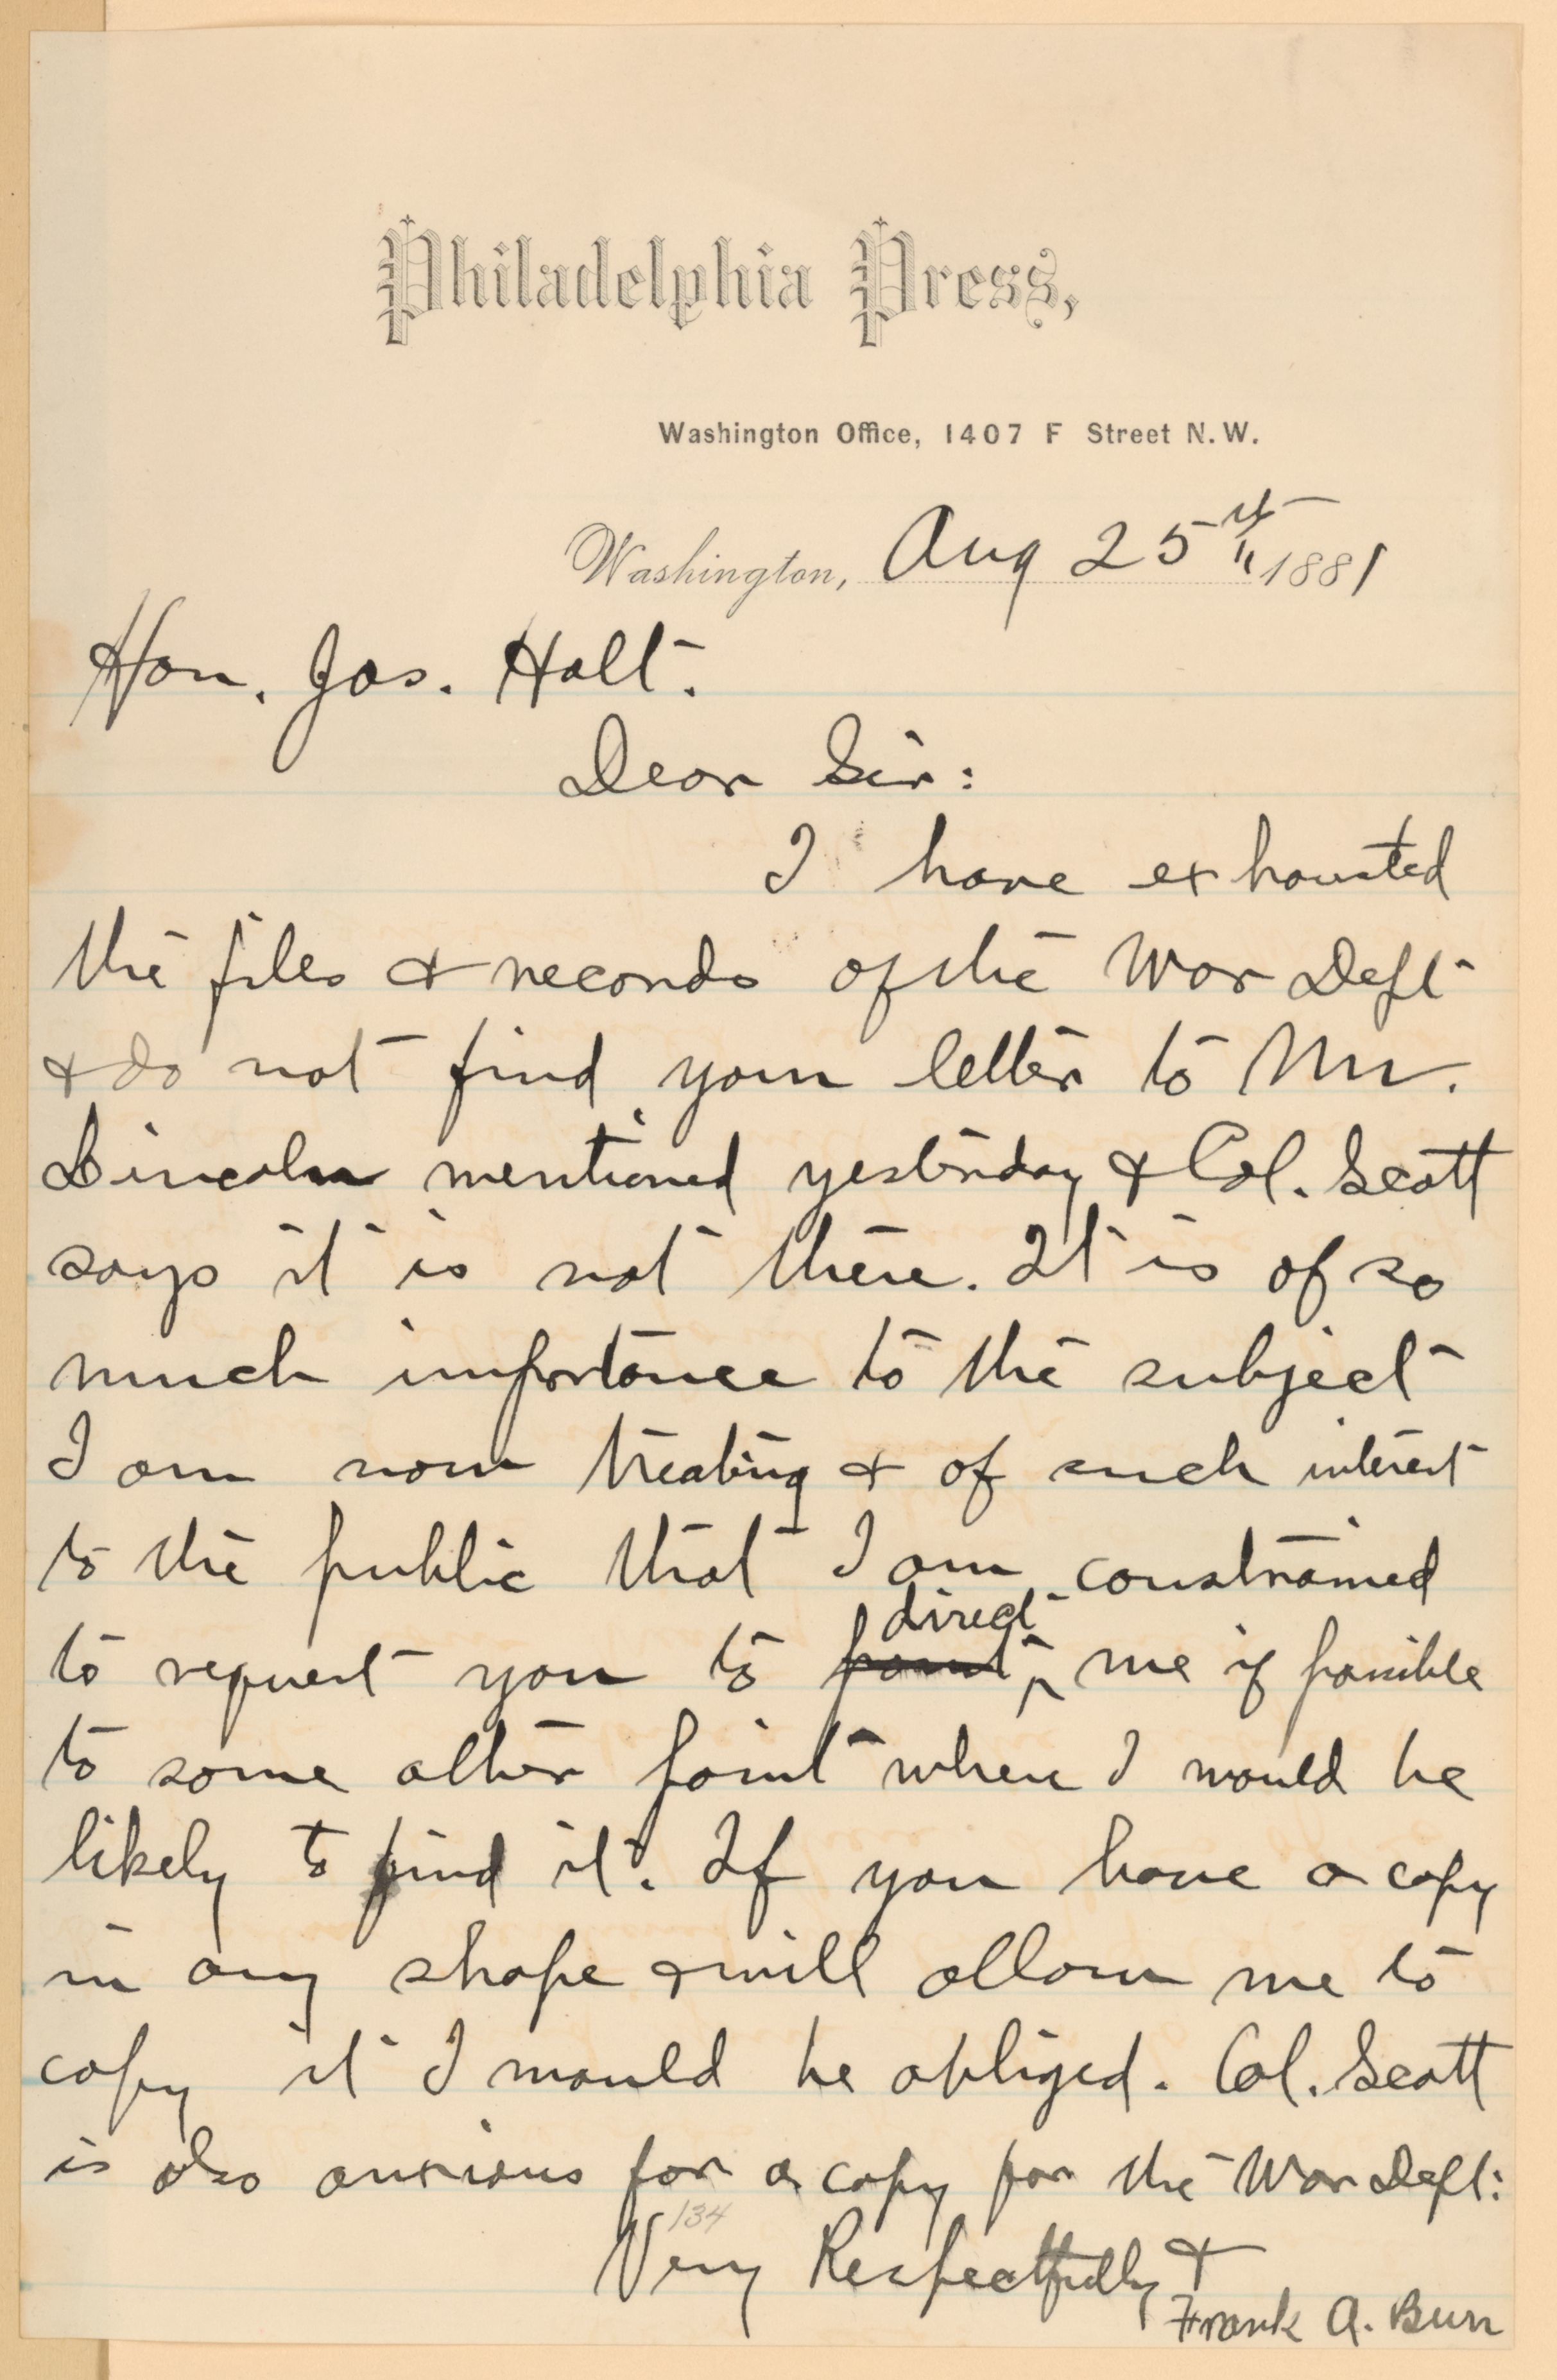 Philadelphia Press,
Washington Office, 1407 F Street N.W.
Washington, Aug 25th 1881
Hon. Jos. Holt.
Dear Sir:
I have exhausted
the files & records of the War Dept
& do not find your letter to Mr.
Lincoln mentioned yesterday & Col. Scott
says it is not there. It is of so
much importance to the subject
I am now treating & of such interest
to the public that I am constrained
direct
to request you to point ^ me if possible
to some other point where I would be
likely to find it. If you have a copy
in any shape & will allow me to
copy it I would be obliged. Col. Scott
is also anxious for a copy for the War Dept:
134
Very Respectfully &
Frank A. Burr